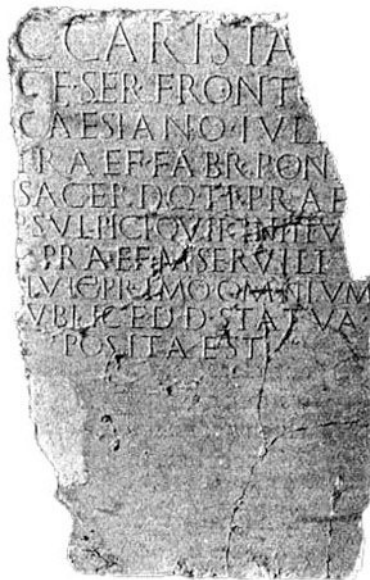 C·CARISTA
C·F·SER·FRONTO
CAESIANO·IVLI
PRAEF·FABR·PON
SACERDOTI·PRAEF
P·SVLPICI·QVIRINI·IIV
PRAEF·M·SERVILI
HVIC·PRIMO·OMNIVM
VBLICE·D·D·STATVA
POSITA EST